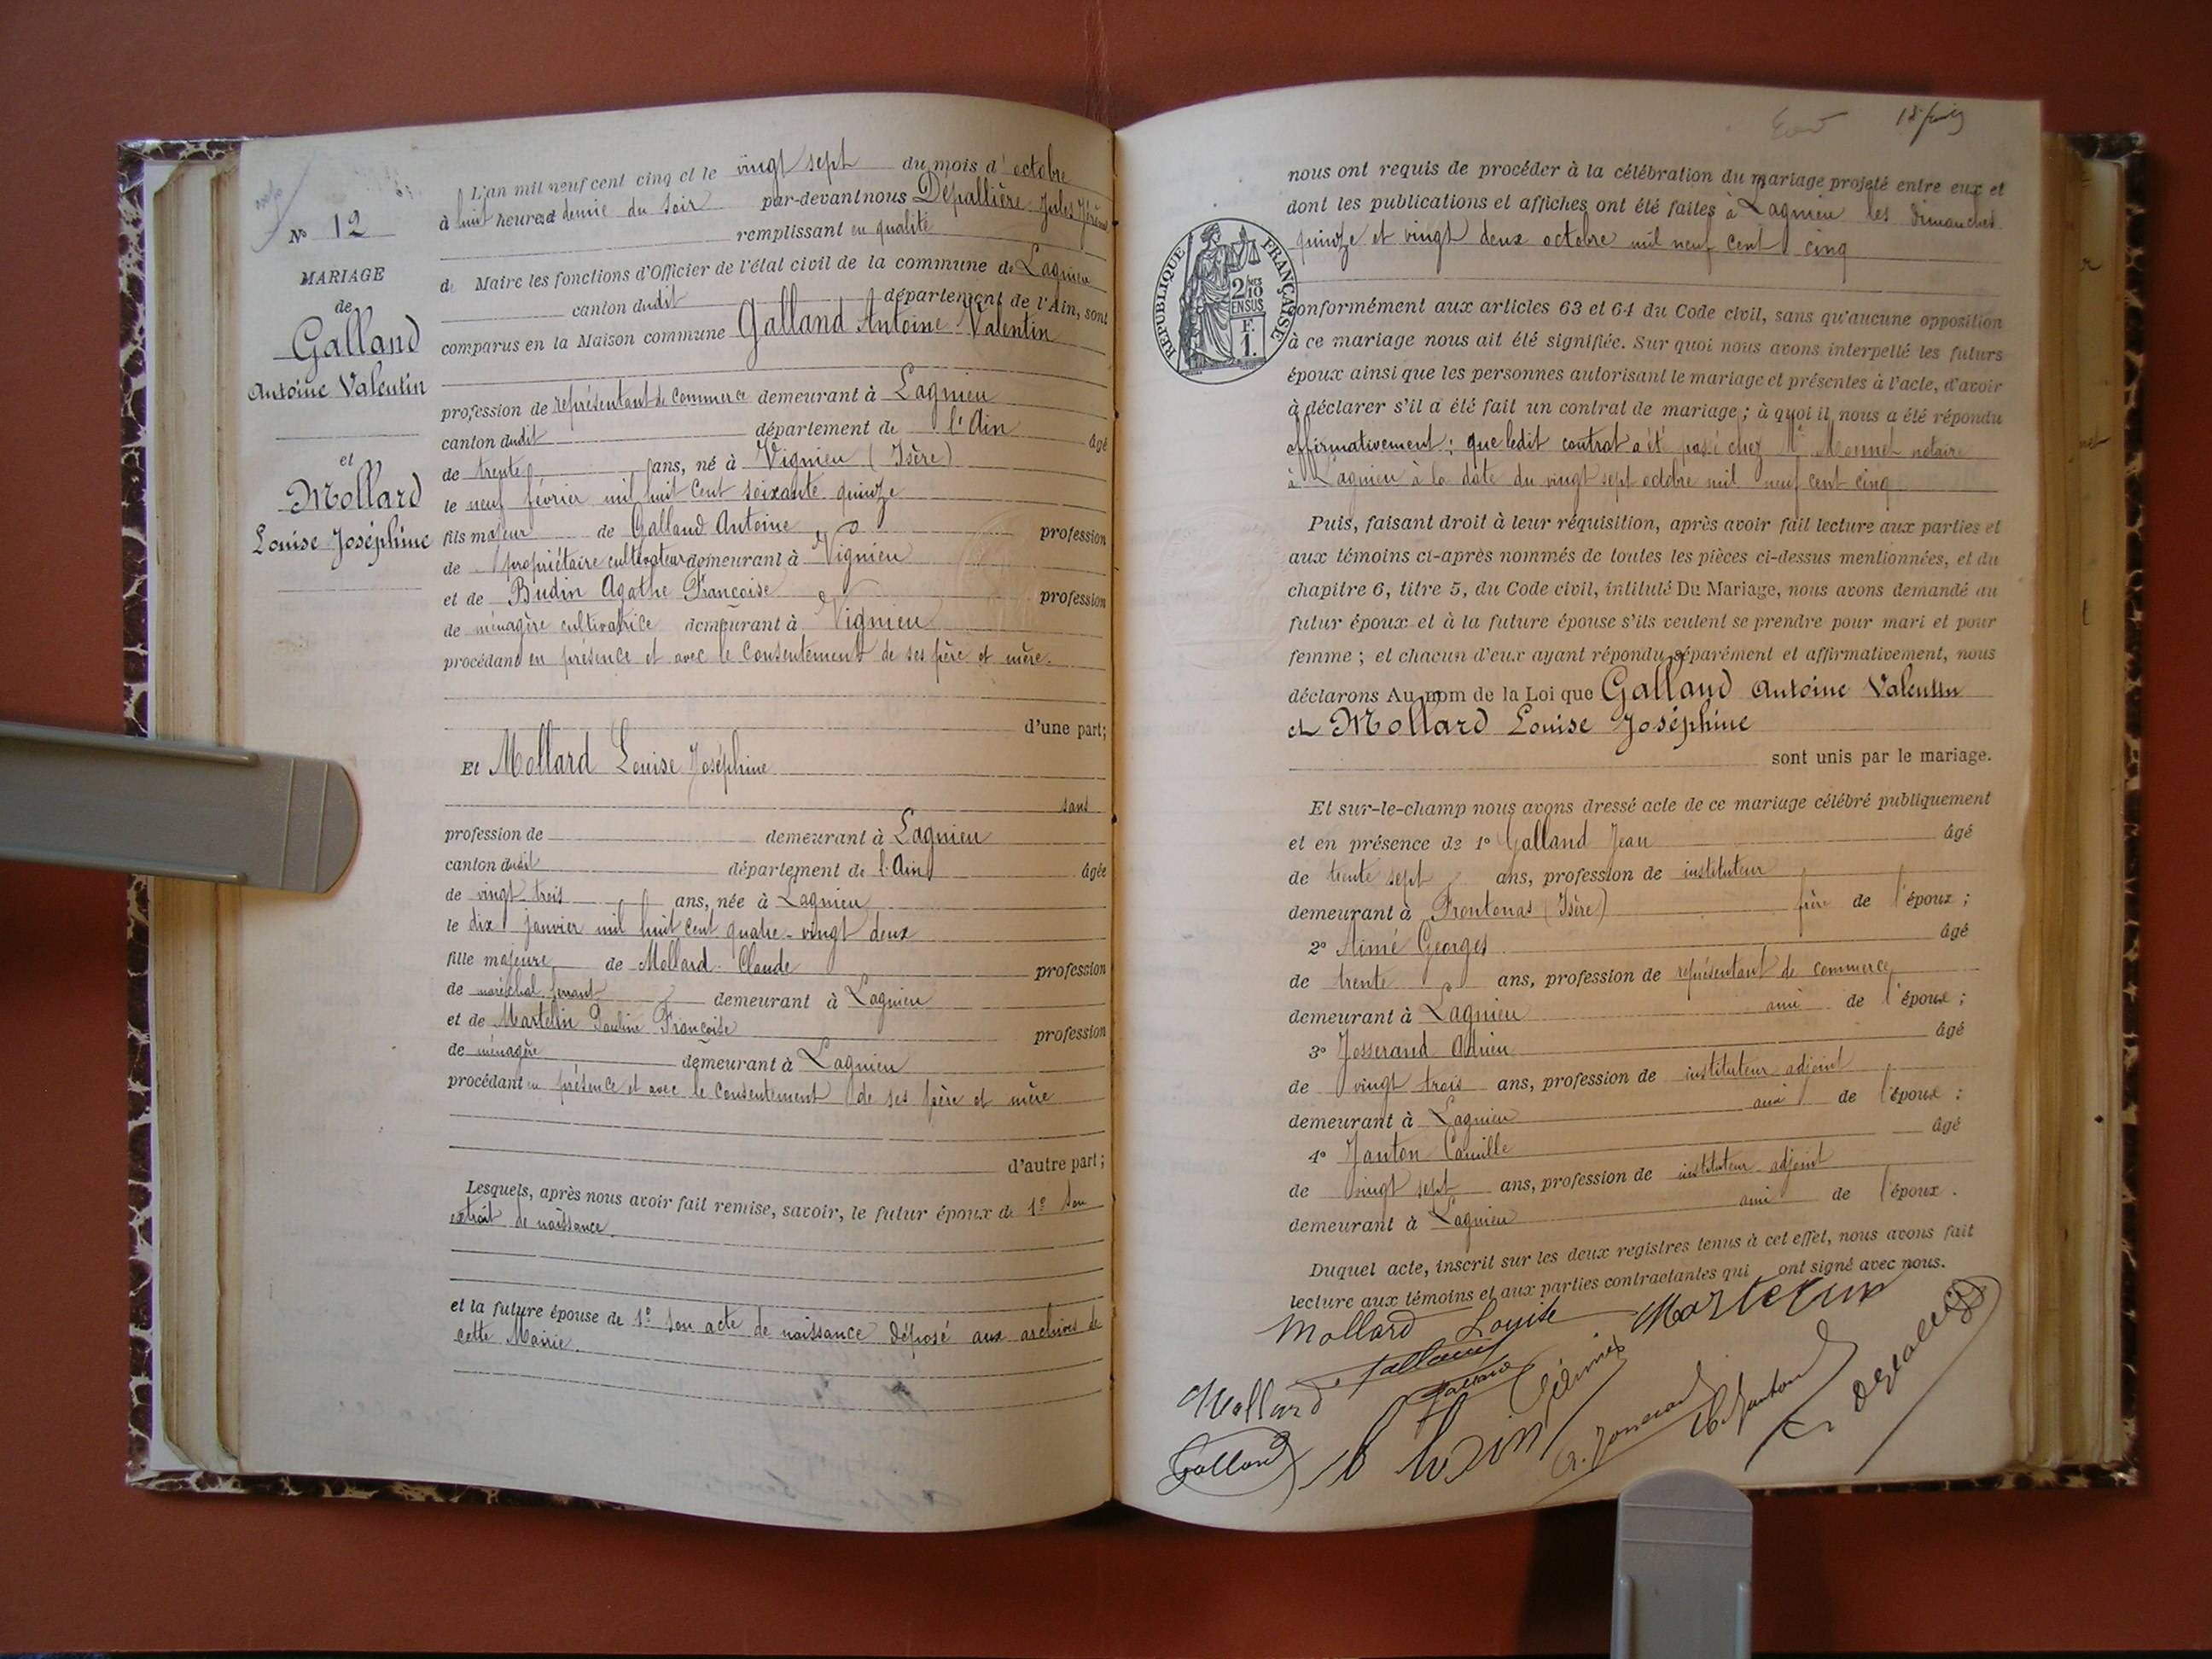 N° 12
MARIAGE
de
Galland
Antoine Valentin
et
Mollard
Louise Joséphine
L'an mil neuf cent cinq et le vingt sept du mois d'octobre
à huit heures et demie du soir par-devant nous Dépallière Jules
remplissant en qualité
de Maire les fonctions d'Officier de l'état civil de la commune de Lagnieu
canton dudit département de l'Ain, sont
comparus en la Maison commune Galland Antoine Valentin
profession de représentant de commerce demeurant à Lagnieu
canton dudit département de l'Ain âgé
de trente ans, né à Vignieu (Isère)
le neuf février mil huit cent soixante quinze
fils majeur de Galland Antoine profession
de propriétaire cultivateur demeurant à Vignieu
et de Budin Agathe Françoise profession
de ménagère cultivatrice demeurant à Vignieu
procédant en présence et avec le consentement de ses père et mère.
d'une part;
Et Mollard Louise Joséphine
sans
profession de demeurant à Lagnieu
canton dudit département de l'Ain âgée
de vingt-trois ans, née à Lagnieu
le dix janvier mil huit cent quatre-vingt deux
fille majeure de Mollard Claude profession
de maréchal ferrant demeurant à Lagnieu
et de Martelin Pauline Françoise profession
de ménagère demeurant à Lagnieu
procédant en présence et avec le consentement de ses père et mère
d'autre part;
Lesquels, après nous avoir fait remise, savoir, le futur époux de 1° Son
extrait de naissance.
et la future épouse de 1° Son acte de naissance déposé aux archives de
cette Mairie.
nous ont requis de procéder à la célébration du mariage projeté entre eux et
dont les publications et affiches ont été faites à Lagnieu les dimanches
quinze et vingt deux octobre mil neuf cent cinq
RÉPUBLIQUE FRANÇAISE
2/10 EN SUS
F. 1.
conformément aux articles 63 et 64 du Code civil, sans qu'aucune opposition
à ce mariage nous ait été signifiée. Sur quoi nous avons interpellé les futurs
époux ainsi que les personnes autorisant le mariage et présentes à l'acte, d'avoir
à déclarer s'il a été fait un contrat de mariage ; à quoi il nous a été répondu
affirmativement ; que ledit contrat a été passé chez Me Monnet notaire
à Lagnieu à la date du vingt sept octobre mil neuf cent cinq
Puis, faisant droit à leur réquisition, après avoir fait lecture aux parties et
aux témoins ci-après nommés de toutes les pièces ci-dessus mentionnées, et du
chapitre 6, titre 5, du Code civil, intitulé Du Mariage, nous avons demandé au
futur époux et à la future épouse s'ils veulent se prendre pour mari et pour
femme ; et chacun d'eux ayant répondu séparément et affirmativement, nous
déclarons Au nom de la Loi que Galland Antoine Valentin
et Mollard Louise Joséphine
sont unis par le mariage.
Et sur-le-champ nous avons dressé acte de ce mariage célébré publiquement
et en présence de 1° Galland Jean âgé
de trente sept ans, profession de instituteur
demeurant à Frontonas (Isère) frère de l'époux ;
2° Aimé Georges âgé
de trente ans, profession de représentant de commerce
demeurant à Lagnieu ami de l'époux ;
3° Josserand Adrien âgé
de vingt trois ans, profession de instituteur adjoint
demeurant à Lagnieu ami de l'époux ;
4° Janton Camille âgé
de vingt sept ans, profession de instituteur adjoint
demeurant à Lagnieu ami de l'époux.
Duquel acte, inscrit sur les deux registres tenus à cet effet, nous avons fait
lecture aux témoins et aux parties contractantes qui ont signé avec nous.
Mollard Louise Martelin
Mollard Galland
Galland
A. Josserand C. Janton